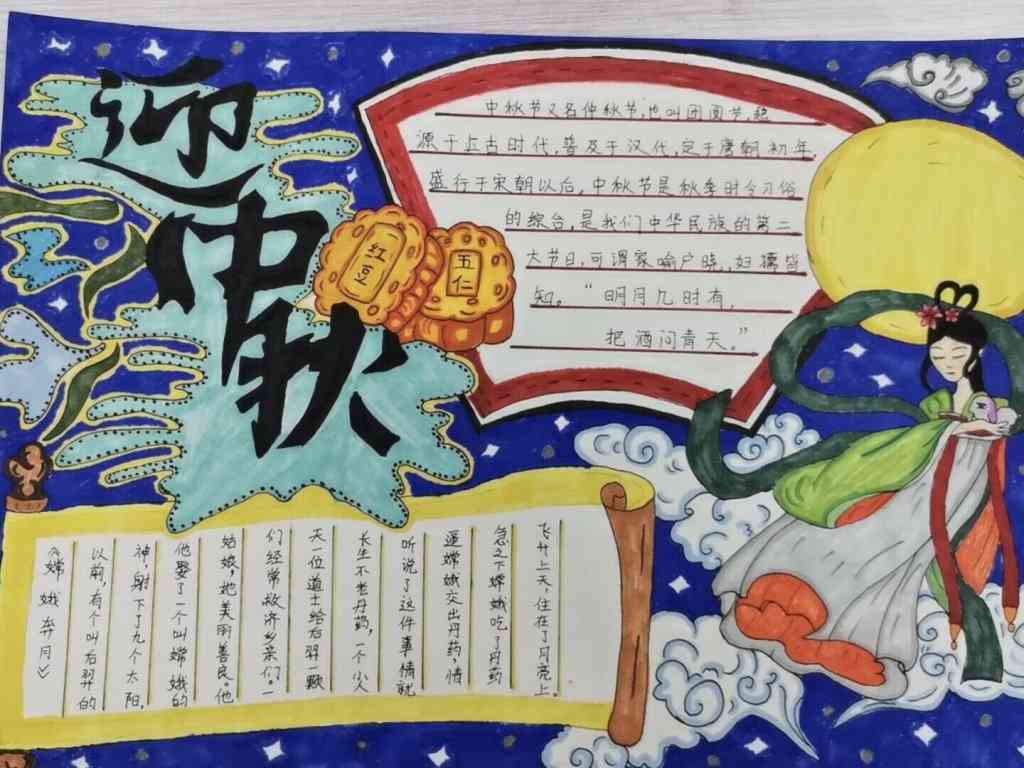 迎
中
秋
中秋节又名仲秋节,也叫团圆节,起
源于上古时代,普及于汉代,定于唐朝初年,
盛行于宋朝以后,中秋节是秋季时令习俗
的综合,是我们中华民族的第二
大节日,可谓家喻户晓,妇孺皆
知。“明月几时有,
把酒问青天。”
红豆
五仁
《嫦娥奔月》
以前,有个叫后羿的
神,射下了九个太阳,
他娶了一个叫嫦娥的
姑娘,她美丽善良。他
们经常救济乡亲们。一
天一位道士给后羿一颗
长生不老丹药,一个小人
听说了这件事情就
逼嫦娥交出丹药,情
急之下嫦娥吃了丹药
飞升上天,住在了月亮上。